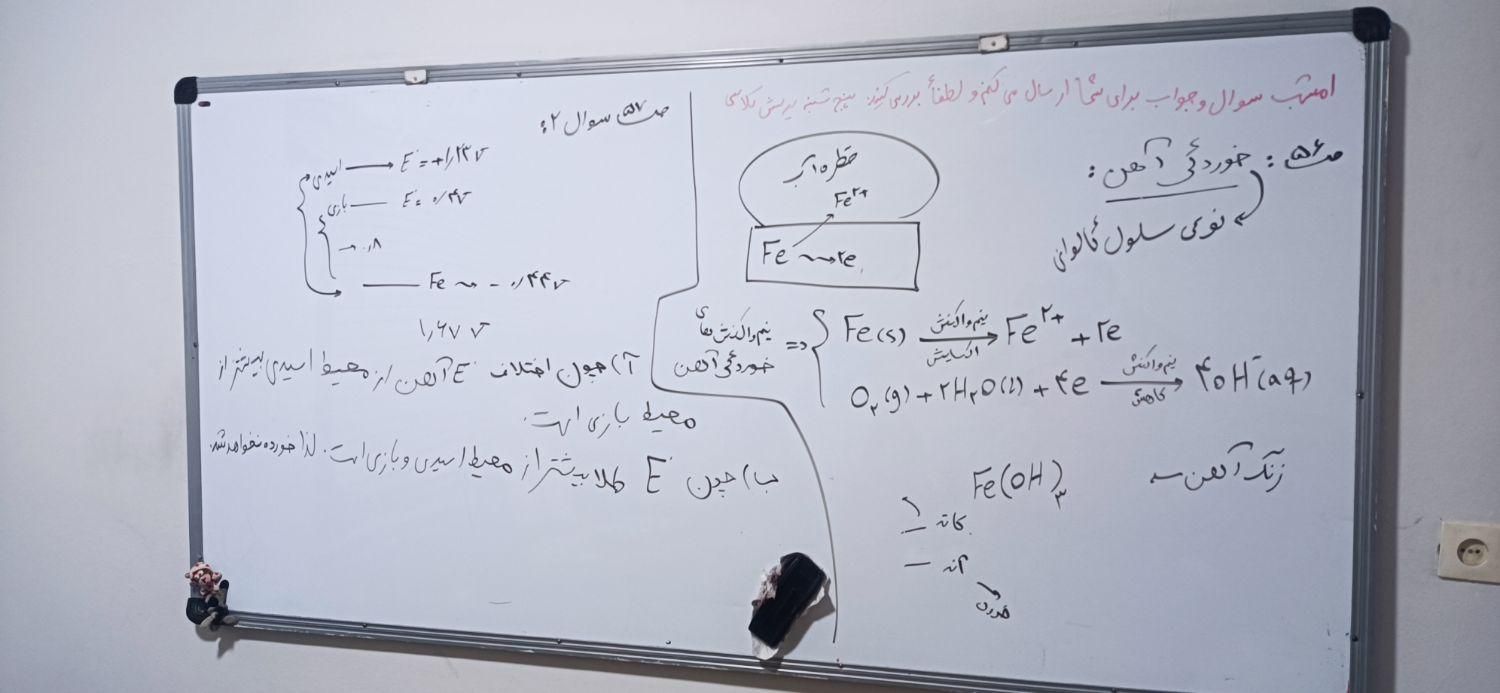 امشب سوال و جواب برای شما ارسال می کنم و لطفاً بررسی کنید. پنج شنبه پرسش کلاسی
ص ۵۶: خوردگی آهن:
نوعی سلول گالوانی
قطره آب
Fe²⁺
Fe ⟿ ۲e
نیم واکنش های خوردگی آهن
Fe(s) نیم واکنش اکسایش → Fe²⁺ + ۲e
O₂(g) + ۲H₂O(l) + ۴e نیم واکنش کاهش → ۴OH⁻(aq)
زنگ آهن → Fe(OH)₃
کاتد –
آند –
ص ۵۷ سوال ۲:
اسیدی → E° = +۱/۲۳ v
بازی — E° = ۰/۴ v
→ ۰/۸
— Fe ⟿ - ۰/۴۴ v
۱/۶۷ v
آ) چون اختلاف E° آهن از محیط اسیدی بیشتر از
محیط بازی است.
ب) چون E° طلا بیشتر از محیط اسیدی و بازی است. لذا خورده نخواهد شد.